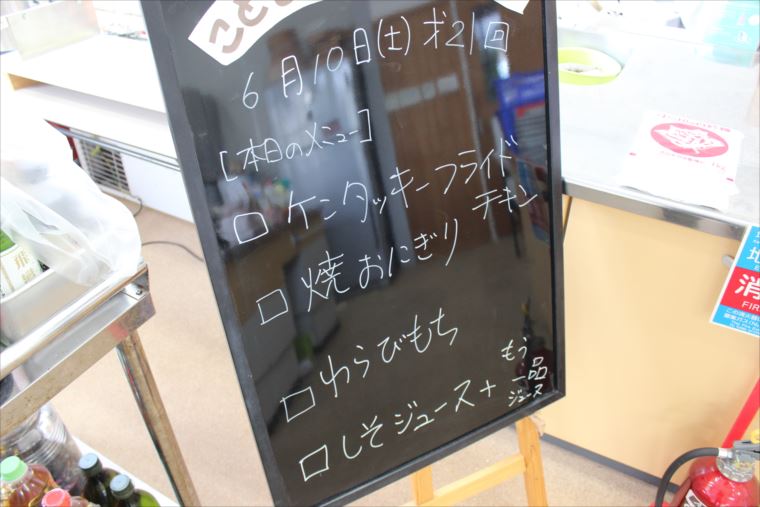 こども
6月10日(土) 才21回
[本日のメニュー]
□ ケンタッキーフライド
チキン
□ 焼おにぎり
□ わらびもち
□ しそジュース+もう
一品
ジュース
消
FIR